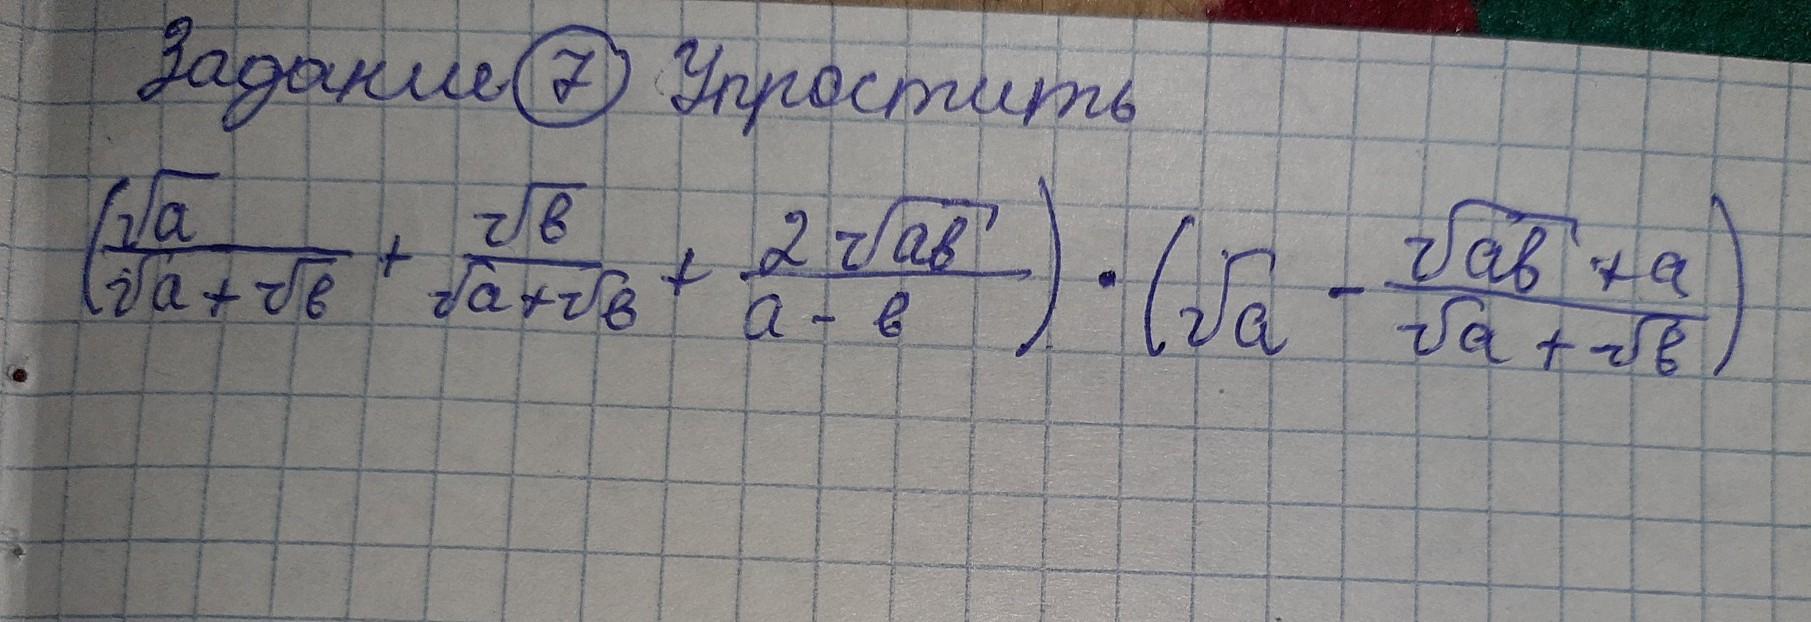 Задание 7 Упростить
(√a/(√a + √b) + √b/(√a + √b) + 2√ab/(a - b)) · (√a - (√ab + a)/(√a + √b))